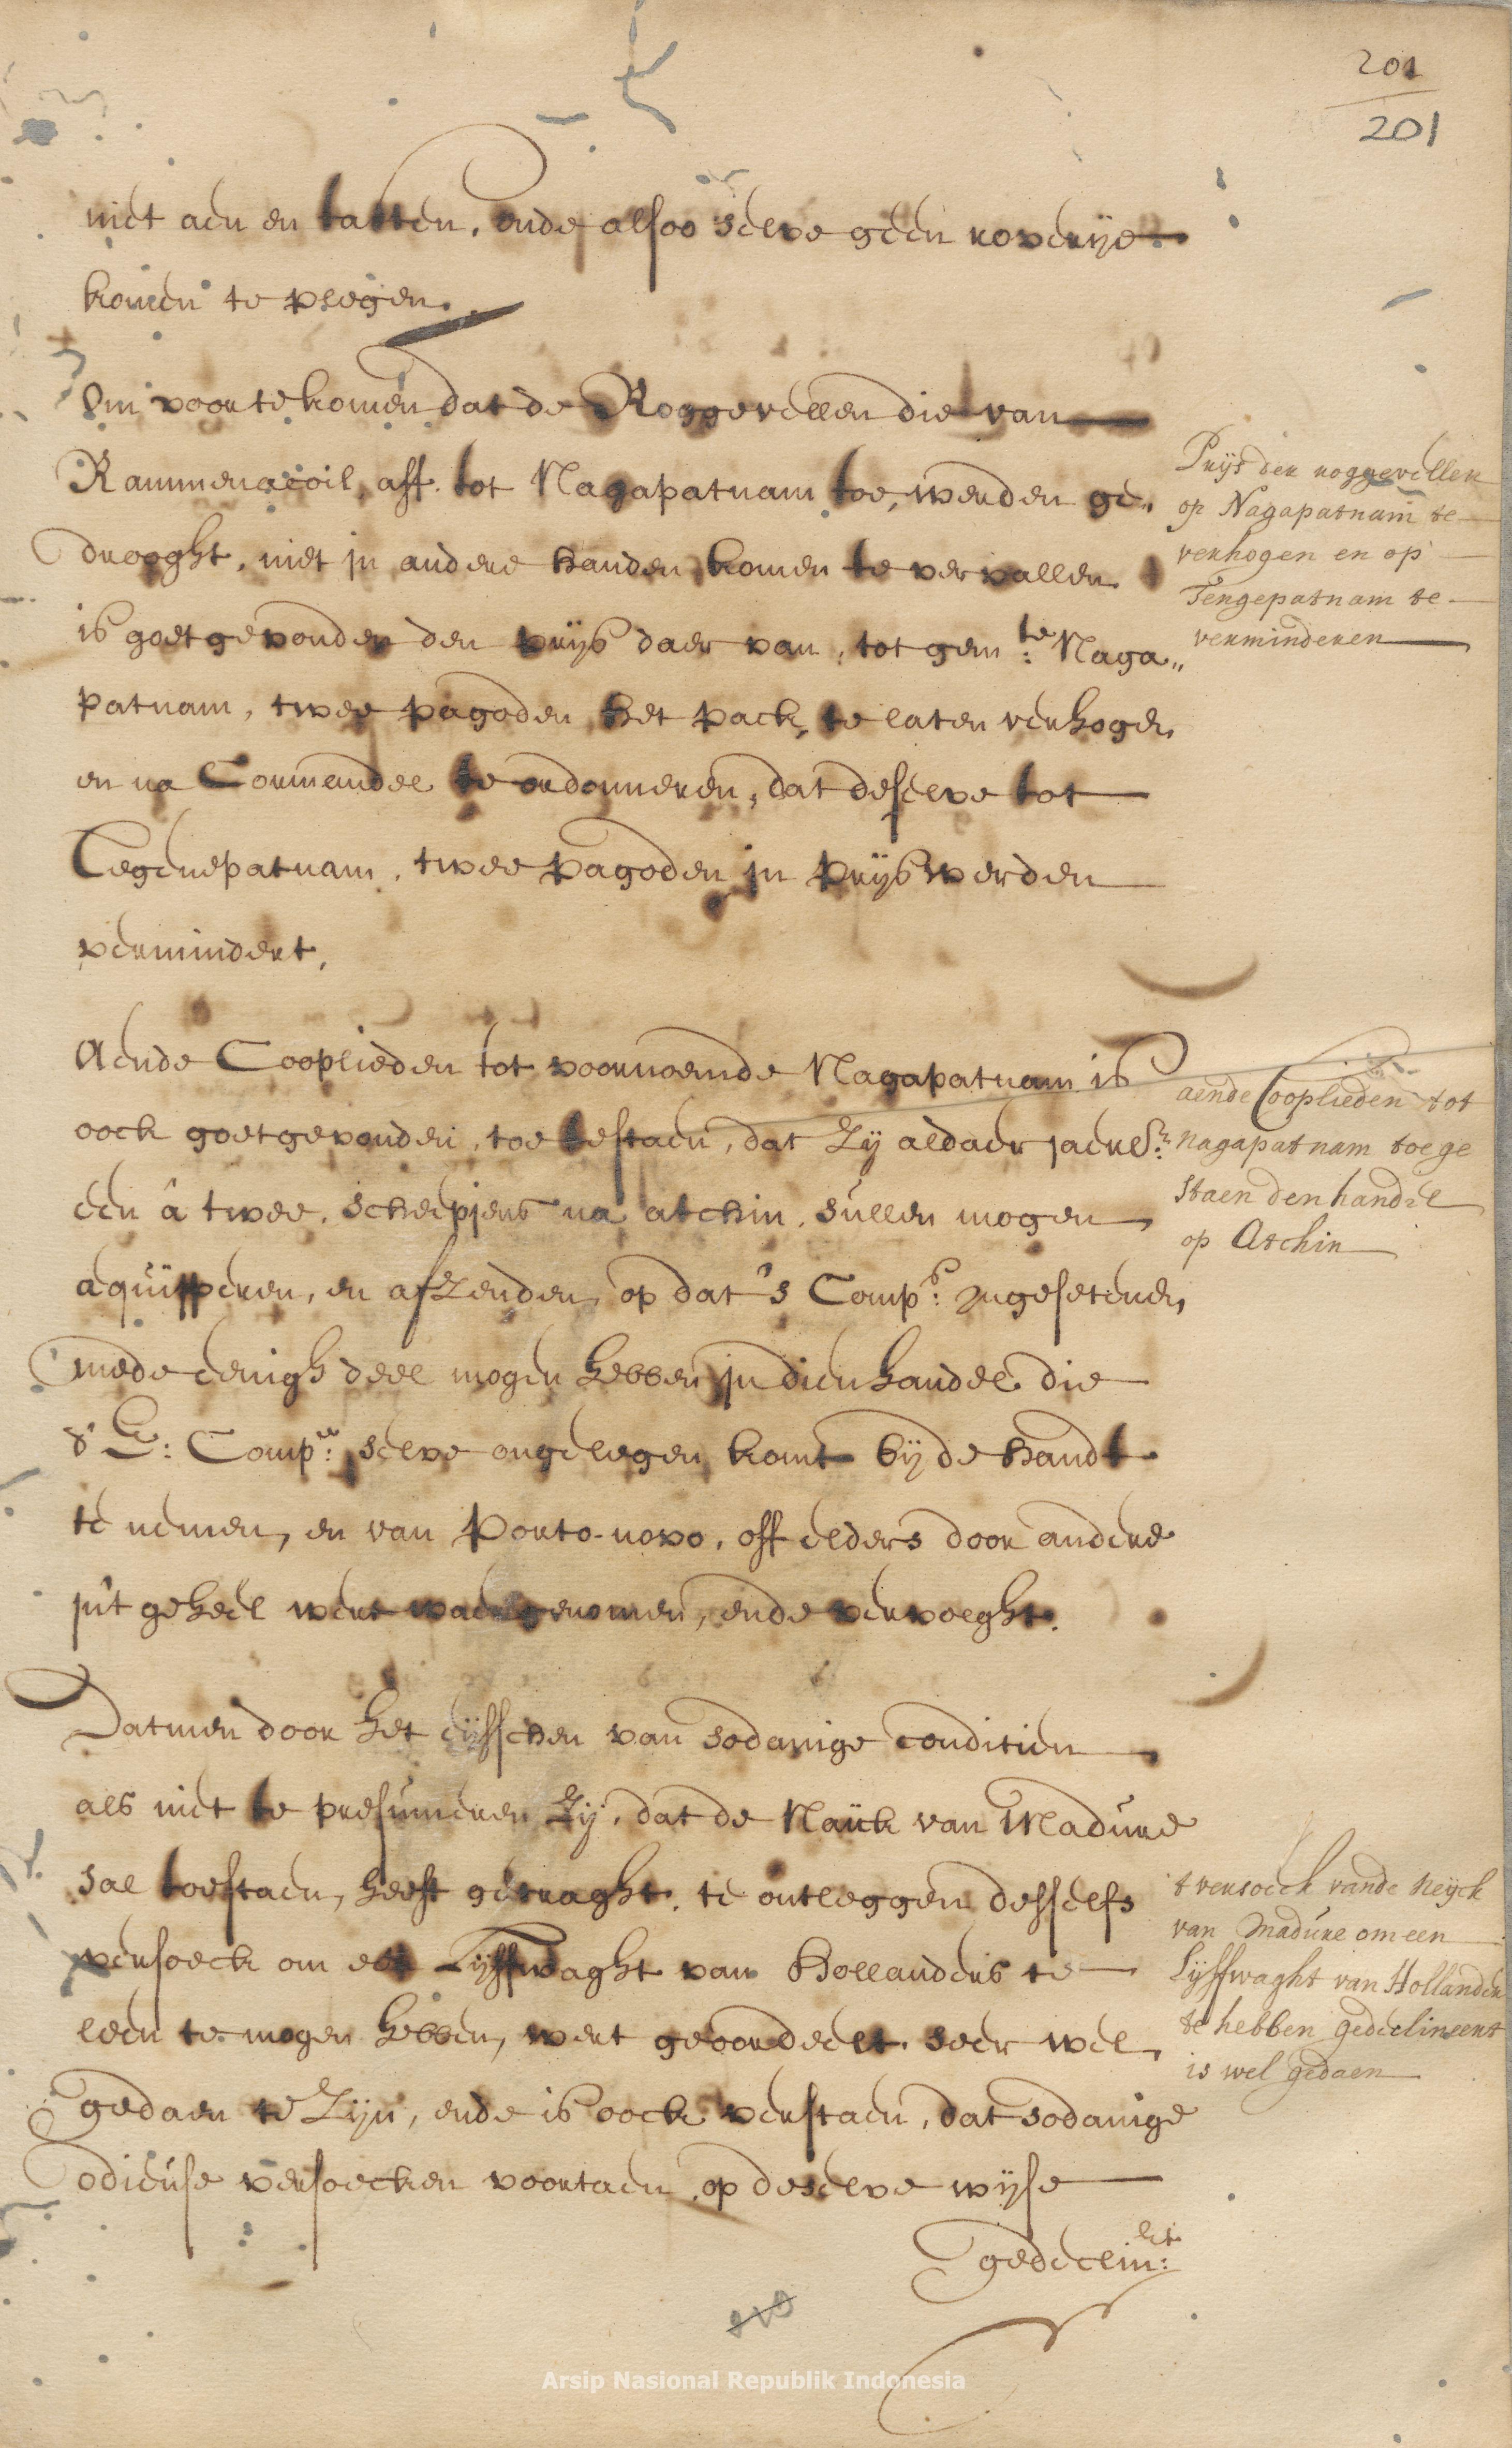 201
201
niet aen en tasten, ende alsoo selve geen roverije
komen te plegen.
Om voor te komen dat de Roggevellen die van
Rammenacoil, aff tot Nagapatnam toe, werden ge„
drooght, niet in andere handen komen te vervallen
is goet gevonden den prijs daer van, tot gem:te Naga„
patnam, twee pagoden het pack, te laten verhogen
en na Cormandel te ordonneren, dat deselve tot
Tegenepatnam, twee pagoden in prijs werden
vermindert,
Prijs der roggevellen
op Nagapatnam te
verhogen en op
Tengepatnam te
verminderen
Aende Cooplieden tot voornoemde Nagapatnam is
oock goetgevonden, toe te staen, dat Zij aldaer jaerl:x
een â twee, scheepjens na atchin, sullen mogen
aquipperen, en afzenden, op dat 's Comp:s Ingesetenen,
mede eenigh deel mogen hebben in dien handel die
d' E: Comp:e selve ongelegen komt bij de handt
te nemen, en van Porto-novo, off elders door andere
in't geheel wert waergenomen, ende vervolght.
aende Cooplieden tot
Nagapatnam toege
staen den handel
op Atchin
Datmen door het eijsschen van sodanige conditien
als niet te presumeren Zij, dat de Naijck van Madure
sal toestaen, heeft getraght, te ontleggen desselfs
versoeck om een Lijffwaght van Hollanders te
leen te mogen hebben, wert geoordeelt, seer wel
gedaen te Zijn, ende is oock verstaen, dat sodanige
odieuse versoecken voortaen, op deselve wijse
t versoeck vande Neijck
van Madure om een
Lijffwaght van Hollanders
te hebben gedeclineert
is wel gedaen
gedeclin:
Arsip Nasional Republik Indonesia